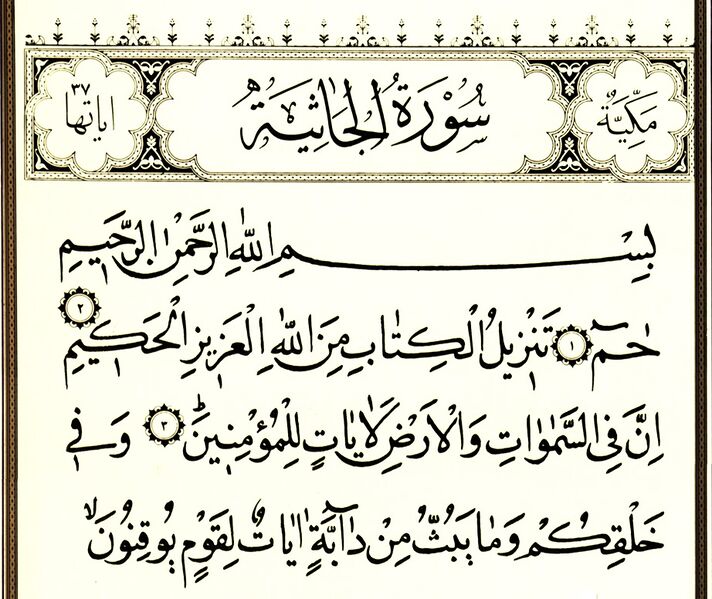 مَكِّيَّةٌ سُورَةُ الْجَاثِيَةِ اٰيَاتُهَا ٣٧
بِسْمِ اللّٰهِ الرَّحْمٰنِ الرَّحٖيمِ
حٰمٓ ١ تَنْزٖيلُ الْكِتَابِ مِنَ اللّٰهِ الْعَزٖيزِ الْحَكٖيمِ ٢
اِنَّ فِى السَّمٰوَاتِ وَالْاَرْضِ لَاٰيَاتٍ لِلْمُؤْمِنٖينَۜ ٣ وَفٖى
خَلْقِكُمْ وَمَا يَبُثُّ مِنْ دَٓابَّةٍ اٰيَاتٌ لِقَوْمٍ يُوقِنُونَۙ